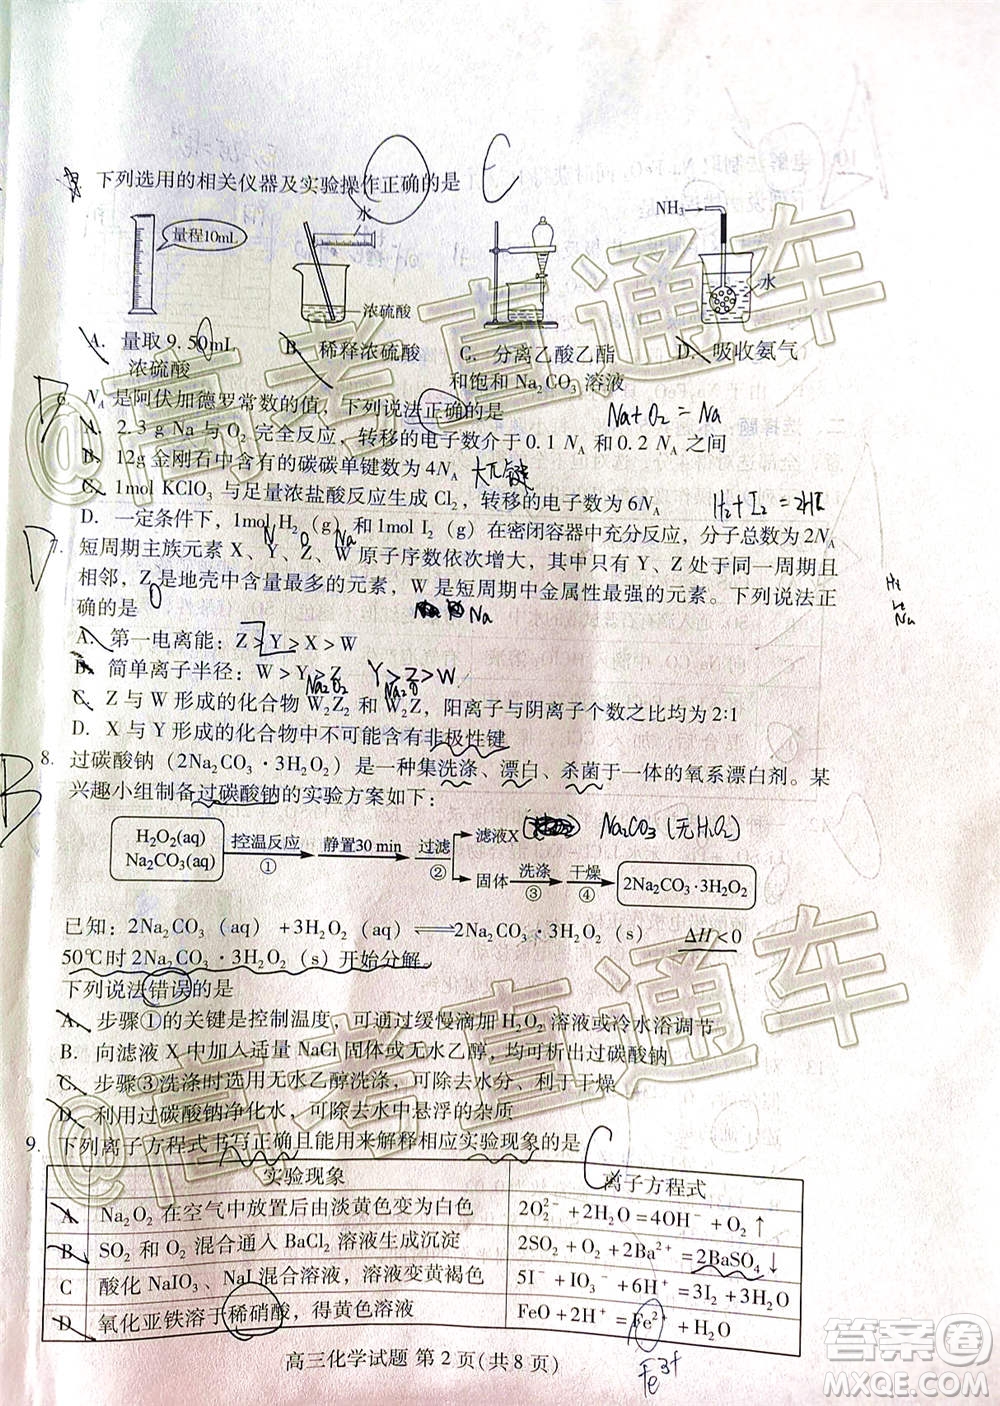 下列选用的相关仪器及实验操作正确的是 C
量程10mL
水
浓硫酸
NH₃
水
A. 量取9.50mL浓硫酸
B. 稀释浓硫酸
C. 分离乙酸乙酯和饱和Na₂CO₃溶液
D. 吸收氨气
6. Nᴀ是阿伏加德罗常数的值，下列说法正确的是
Na+O₂=Na
A. 2.3 g Na与O₂完全反应，转移的电子数介于0.1 Nᴀ和0.2 Nᴀ之间
B. 12g金刚石中含有的碳碳单键数为4Nᴀ
C. 1mol KClO₃与足量浓盐酸反应生成Cl₂，转移的电子数为6Nᴀ
H₂+I₂=2HI
D. 一定条件下，1mol H₂（g）和1mol I₂（g）在密闭容器中充分反应，分子总数为2Nᴀ
D
N O Na
7. 短周期主族元素X、Y、Z、W原子序数依次增大，其中只有Y、Z处于同一周期且
相邻，Z是地壳中含量最多的元素，W是短周期中金属性最强的元素。下列说法正
确的是
O
Na
A. 第一电离能：Z>Y>X>W
B. 简单离子半径：W>Y>Z
Y>Z>W
Na₂O₂ Na₂O
C. Z与W形成的化合物W₂Z₂、W₂Z，阳离子与阴离子个数之比均为2:1
D. X与Y形成的化合物中不可能含有非极性键
B
8. 过碳酸钠（2Na₂CO₃·3H₂O₂）是一种集洗涤、漂白、杀菌于一体的氧系漂白剂。某
兴趣小组制备过碳酸钠的实验方案如下：
H₂O₂(aq)
Na₂CO₃(aq)
控温反应 ①
静置30 min
过滤 ②
滤液X
Na₂CO₃(无H₂O₂)
固体
洗涤 ③
干燥 ④
2Na₂CO₃·3H₂O₂
已知：2Na₂CO₃（aq）+3H₂O₂（aq）⇌2Na₂CO₃·3H₂O₂（s） ΔH<0
50℃时2Na₂CO₃·3H₂O₂（s）开始分解
下列说法错误的是
A. 步骤①的关键是控制温度，可通过缓慢滴加H₂O₂溶液或冷水浴调节
B. 向滤液X中加入适量NaCl固体或无水乙醇，均可析出过碳酸钠
C. 步骤③洗涤时选用无水乙醇洗涤，可除去水分、利于干燥
D. 利用过碳酸钠净化水，可除去水中悬浮的杂质
9. 下列离子方程式书写正确且能用来解释相应实验现象的是 C
实验现象 离子方程式
A Na₂O₂在空气中放置后由淡黄色变为白色 2O₂²⁻+2H₂O=4OH⁻+O₂↑
B SO₂和O₂混合通入BaCl₂溶液生成沉淀 2SO₂+O₂+2Ba²⁺=2BaSO₄↓
C 酸化NaIO₃、NaI混合溶液，溶液变黄褐色 5I⁻+IO₃⁻+6H⁺=3I₂+3H₂O
D 氧化亚铁溶于稀硝酸，得黄色溶液 FeO+2H⁺=Fe²⁺+H₂O
Fe³⁺
高三化学试题 第2页(共8页)
@高考直通车
@高考直通车
答案圈
MXQE.COM